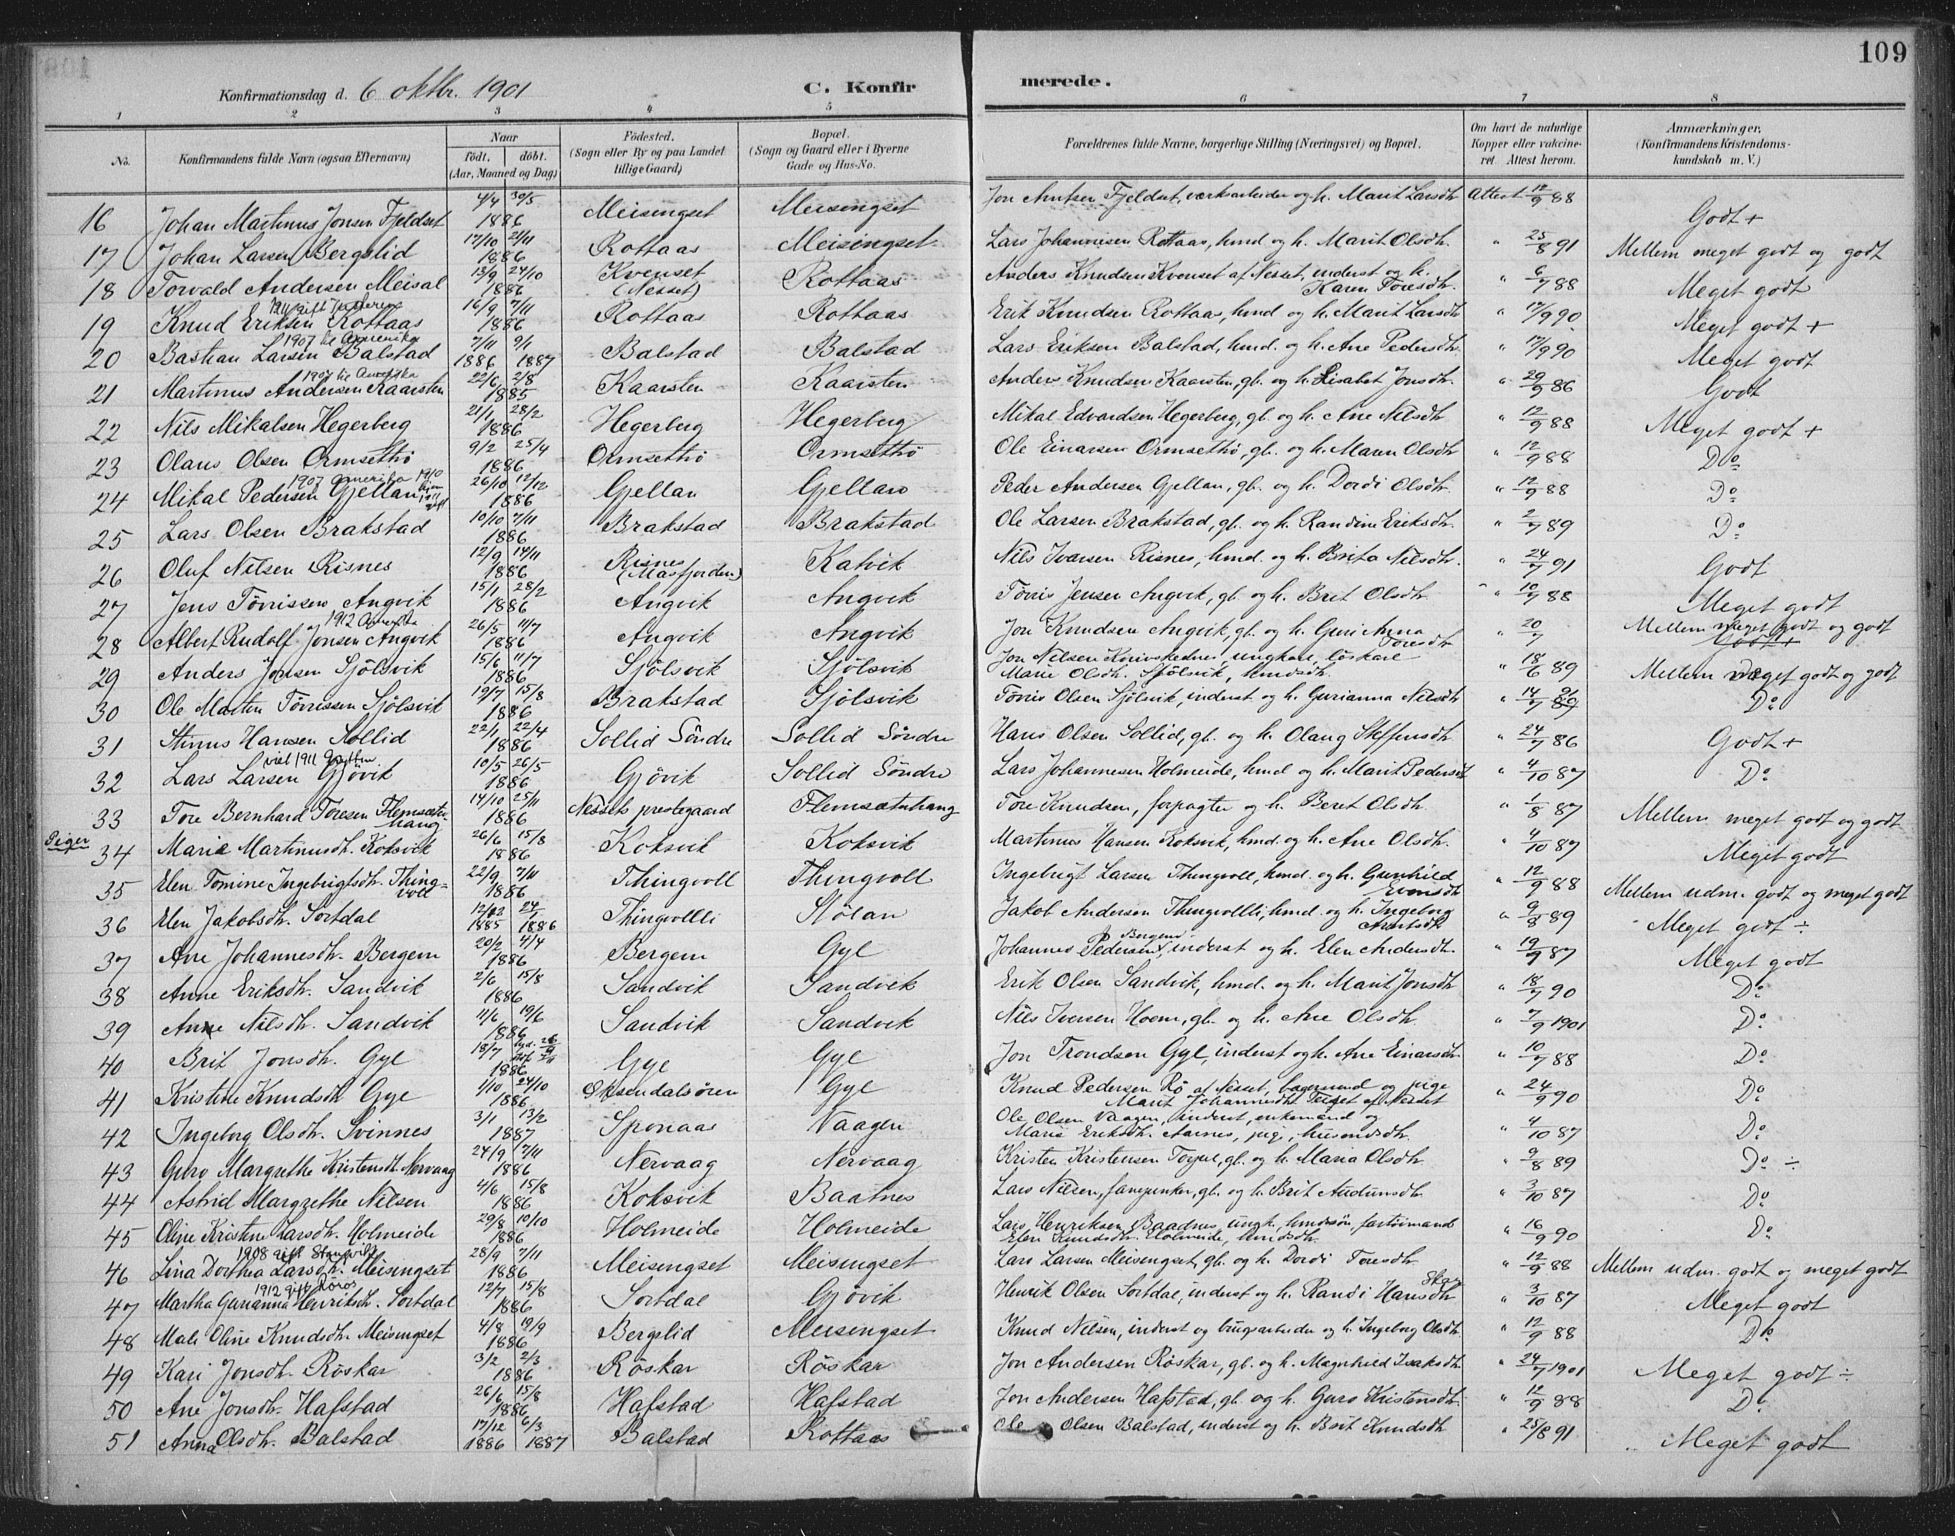 109
Konfirmationsdag d. 6 oktbr. 1901 C. Konfirmerede.
1 2 3 4 5 6 7 8
No. Konfirmandens fulde Navn (ogsaa Efternavn) Naar födt. döbt. (Aar, Maaned og Dag) Födested. (Sogn eller By og paa Landet tillige Gaard) Bopæl. (Sogn og Gaard eller i Byerne Gade og Hus-No. Forældrenes fulde Navne, borgerlige Stilling (Næringsvei) og Bopæl. Om havt de naturlige Kopper eller vakcineret. Attest herom. Anmærkninger. (Konfirmandens Kristendomskundskab m. V.)
16 Johan Martinus Jonsen Fjeldset 4/4 30/5 1886 Meisingset Meisingset Jon Arntsen Fjeldset, værkarbeider og h. Marit Larsdh Attest 12/9 88 Godt +
17 Johan Larsen Bergslid 17/10 21/11 1886 Rottaas Meisingset Lars Johannesen Rottaas, hmd og h. Marit Olsdh. " 25/8 91 Mellem meget godt og godt
18 Torvald Andersen Meisal 13/9 24/10 1886 Kvenset (Nesset) Rottaas Anders Knudsen Kvenset af Nesset, inderst og h. Karen Toresdh. " 6/7 88 Meget godt
19 Knud Eriksen Rottaas 1911 gift 16/9 7/11 1886 Rottaas Rottaas Erik Knudsen Rottaas, hmd og h. Marit Larsdh " 17/9 90 Meget godt +
20 Bastian Larsen Balstad 1907 til Amerika 7/11 1886 9/1 1887 Balstad Balstad Lars Eriksen Balstad, hmd. og h. Ane Pedersdh. " 17/9 90 Meget godt
21 Martinus Andersen Kaarsten 1907 til Amerika 22/6 2/8 1885 Kaarsten Kaarsten Anders Knudsen Kaarsten, gb. og h. Lisabet Jonsdh. " 29/9 86 Godt
22 Nils Mikalsen Hegerberg 21/1 28/2 1886 Hegerberg Hegerberg Mikal Edvardsen Hegerberg, gb. og h. Ane Nilsdh " 12/9 88 Meget godt +
23 Olaus Olsen Ormsethö 9/2 25/4 1886 Ormsethö Ormsethö Ole Einarsen Ormsethö, gb. og h. Maren Olsdh " 12/9 88 Do
24 Mikal Pedersen Gjellan 1907 Amerika 1910 26/10 12/12 1886 Gjellan Gjellan Peder Andersen Gjellan, gb. og h. Dordi Olsdh. " 12/9 88 Do
25 Lars Olsen Brakstad 10/10 7/11 1886 Brakstad Brakstad Ole Larsen Brakstad, gb. og h. Randine Eriksdh. " 2/7 89 Do
26 Oluf Nilsen Risnes 12/9 14/11 1886 Risnes (Masfjorden) Kalvik Nils Ivarsen Risnes, hmd. og h. Brita Nilsdh. " 24/7 91 Godt
27 Jens Törrissen Angvik 15/1 28/2 1886 Angvik Angvik Törris Jensen Angvik, gb. og h. Brit Olsdh " 10/7 88 Meget godt
28 Albert Rudolf Jonsen Angvik 1912 Amerika 26/5 11/7 1886 Angvik Angvik Jon Knudsen Angvik, gb. og h. Guri Anna Toresdh " 20/7 Mellem meget godt og godt Godt +
29 Anders Jonsen Sjölsvik 15/6 11/7 1886 Sjölsvik Sjölsvik Jon Nilsen ungkar, löskarl Marie Olsdh. Sjölsvik, hmdsdh. " 18/6 89 Mellem meget godt og godt
30 Ole Martin Törrissen Sjölsvik 19/7 15/8 1886 Brakstad Sjölsvik Törris Olsen Sjölsvik, inderst og h. Gurianna Nilsdh " 14/7 89 Do
31 Stinus Hansen Sollid 22/1 22/4 1886 Sollid Söndre Sollid Söndre Hans Olsen Sollid, gb. og h. Olaug Steffensdh. " 24/7 86 Godt +
32 Lars Larsen Gjövik 10/5 26/5 1886 Gjövik Sollid Söndre Lars Johannesen Holmeide, hmd og h. Marit Pedersdh " 4/10 87 Do
33 Tore Bernhard Toresen Flemsæterhaug 14/10 25/11 1886 Nessets prestegaard Flemsæterhaug Tore Knudsen, forpagter og h. Beret Olsdh. " 1/8 87 Mellem meget godt og godt
Piger
34 Marie Martinusdh. Koksvik 26/6 15/8 1886 Koksvik Koksvik Martinus Hansen Koksvik, hmd. og h. Ane Olsdh. " 4/10 87 Meget godt
35 Elen Tomine Ingebrigtsdh. Thingvoll 22/9 7/11 1886 Thingvoll Thingvoll Ingebrigt Larsen Thingvoll, hmd. og h. Gunhild Evensdh " 12/9 88 Mellem udm. godt og meget godt
36 Elen Jakobsdh. Sortdal 12/12 1885 24/1 1886 Thingvollli Stölan Jakob Andersen Thingvollli, hmd. og h. Ingeborg Arntsdh " 9/8 89 Meget godt ÷
37 Ane Johannesdh. Bergem 20/2 4/4 1886 Bergem Gyl Johannes Pedersen Bergem, inderst og h. Elen Andersdh. " 19/9 87 Meget godt
38 Anne Eriksdh. Sandvik 2/6 15/8 1886 Sandvik Sandvik Erik Olsen Sandvik, hmd. og h. Marit Jonsdh " 18/7 90 Do
39 Ane Nilsdh. Sandvik 11/6 19/6 1886 Sandvik Sandvik Nils Iversen Hoem, gb. og h. Ane Olsdh. " 7/9 1901 Do
40 Brit Jonsdh. Gyl 18/7 1886 Gyl Gyl Jon Trondsen Gyl, inderst og h. Ane Einarsdh. " 10/7 88 Do
41 Kristine Knudsdh Gyl 1/10 24/10 1886 Öksendalsören Gyl Knud Pedersen Rö af Nesset, bagersvend og pige Marit Johannesdh af Nesset " 24/9 90 Do
42 Ingeborg Olsdh. Svinnes 3/1 13/2 1887 Sponaas Vaagen Ole Olsen Vaagen, inderst, enkemand og Marie Eriksdh. Aarnes, pige, husmdsdh. " 4/10 87 Do
43 Guro Margrethe Kristensdh. Nervaag 24/9 7/11 1886 Nervaag Nervaag Kristen Kristensen gb. og h. Maria Olsdh. " 9/8 89 Do ÷
44 Astrid Margrethe Nilsen 4/6 15/8 1886 Koksvik Baatnes Lars Nilsen, fanejunker, gb. og h. Brit Audunsdh. " 3/10 87 Do
45 Oline Kristine Larsdh. Holmeide 29/8 10/10 1886 Holmeide Holmeide Lars Henriksen Baadnes, ungk., hmdsön, fartöimand Elen Knudsdh. Holmeide, hmdsdh. " 16/9 90 Do
46 Lina Dorthea Larsdh. Meisingset 1908 gift Stangvik 28/9 7/11 1886 Meisingset Meisingset Lars Larsen Meisingset, gb. og h. Dordi Toresdh " 12/9 88 Mellem udm. godt og meget godt
47 Martha Gurianna Henriksdh. Sortdal 1912 gift Röros 12/7 15/8 1886 Sortdal Gjövik Henrik Olsen Sortdal, inderst og h. Randi Hansdh " 3/10 87 Meget godt
48 Mali Oline Knudsdh. Meisingset 4/8 19/9 1886 Bergslid Meisingset Knud Nilsen, inderst og brugsarbeider og h. Ingeborg Olsdh. " 12/9 88 Do
49 Kari Jonsdh. Röskar 3/2 2/3 1886 Röskar Röskar Jon Andersen Röskar, gb. og h. Magnhild Isaksdh. " 24/7 1901 Meget godt ÷
50 Ane Jonsdh. Hafstad 26/6 15/8 1886 Hafstad Hafstad Jon Andersen Hafstad, gb. og h. Guro Kristensdh. " 12/9 88 Do
51 Anna Olsdh. Balstad 17/12 1886 6/3 1887 Balstad Rottaas Ole Olsen Balstad, inderst og h. Brit Knudsdh " 25/8 91 Meget godt